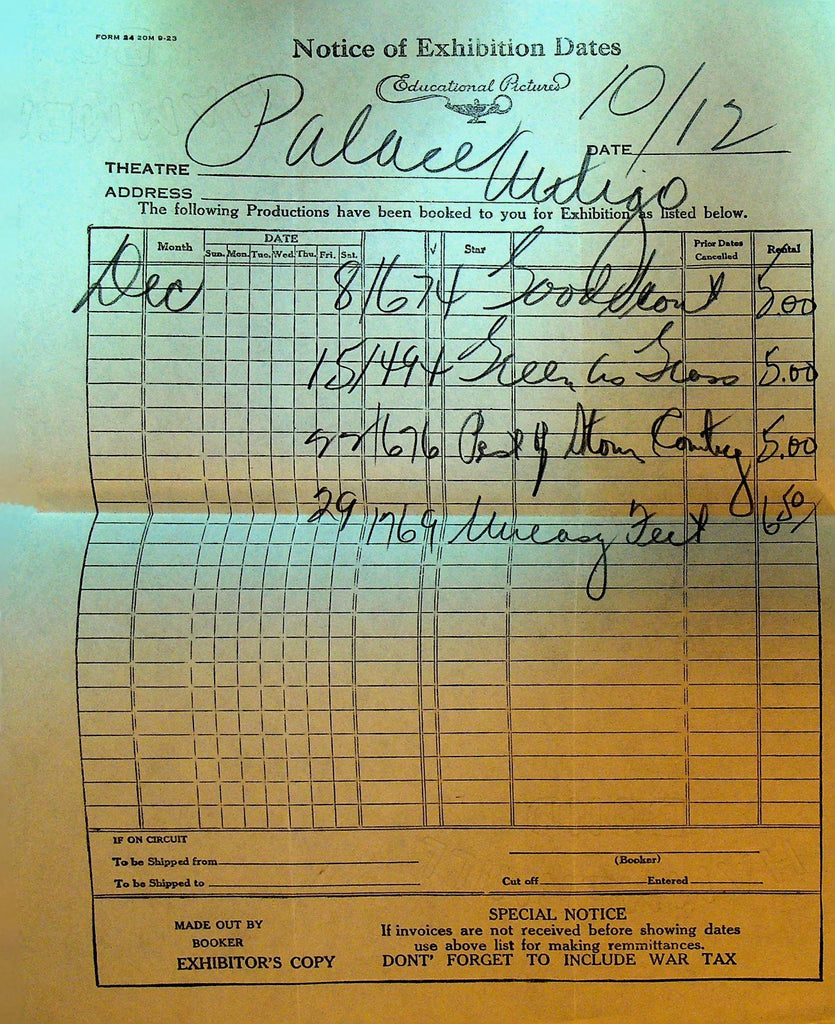 FORM 24 20M 9-23
Notice of Exhibition Dates
Educational Pictures
10/12
DATE
THEATRE Palace Antigo
ADDRESS
The following Productions have been booked to you for Exhibition as listed below.
Month DATE √ Star Prior Dates Cancelled Rental
Sun. Mon. Tue. Wed. Thu. Fri. Sat.
Dec 8 1674 Good Scout 5.00
15 1494 Green As Grass 5.00
22 1676 Pest of Storm Contry 5.00
29 1769 Uneasy Feet 6.50
IF ON CIRCUIT
To be Shipped from
(Booker)
To be Shipped to Cut off Entered
MADE OUT BY
BOOKER
EXHIBITOR'S COPY
SPECIAL NOTICE
If invoices are not received before showing dates
use above list for making remmittances.
DONT' FORGET TO INCLUDE WAR TAX